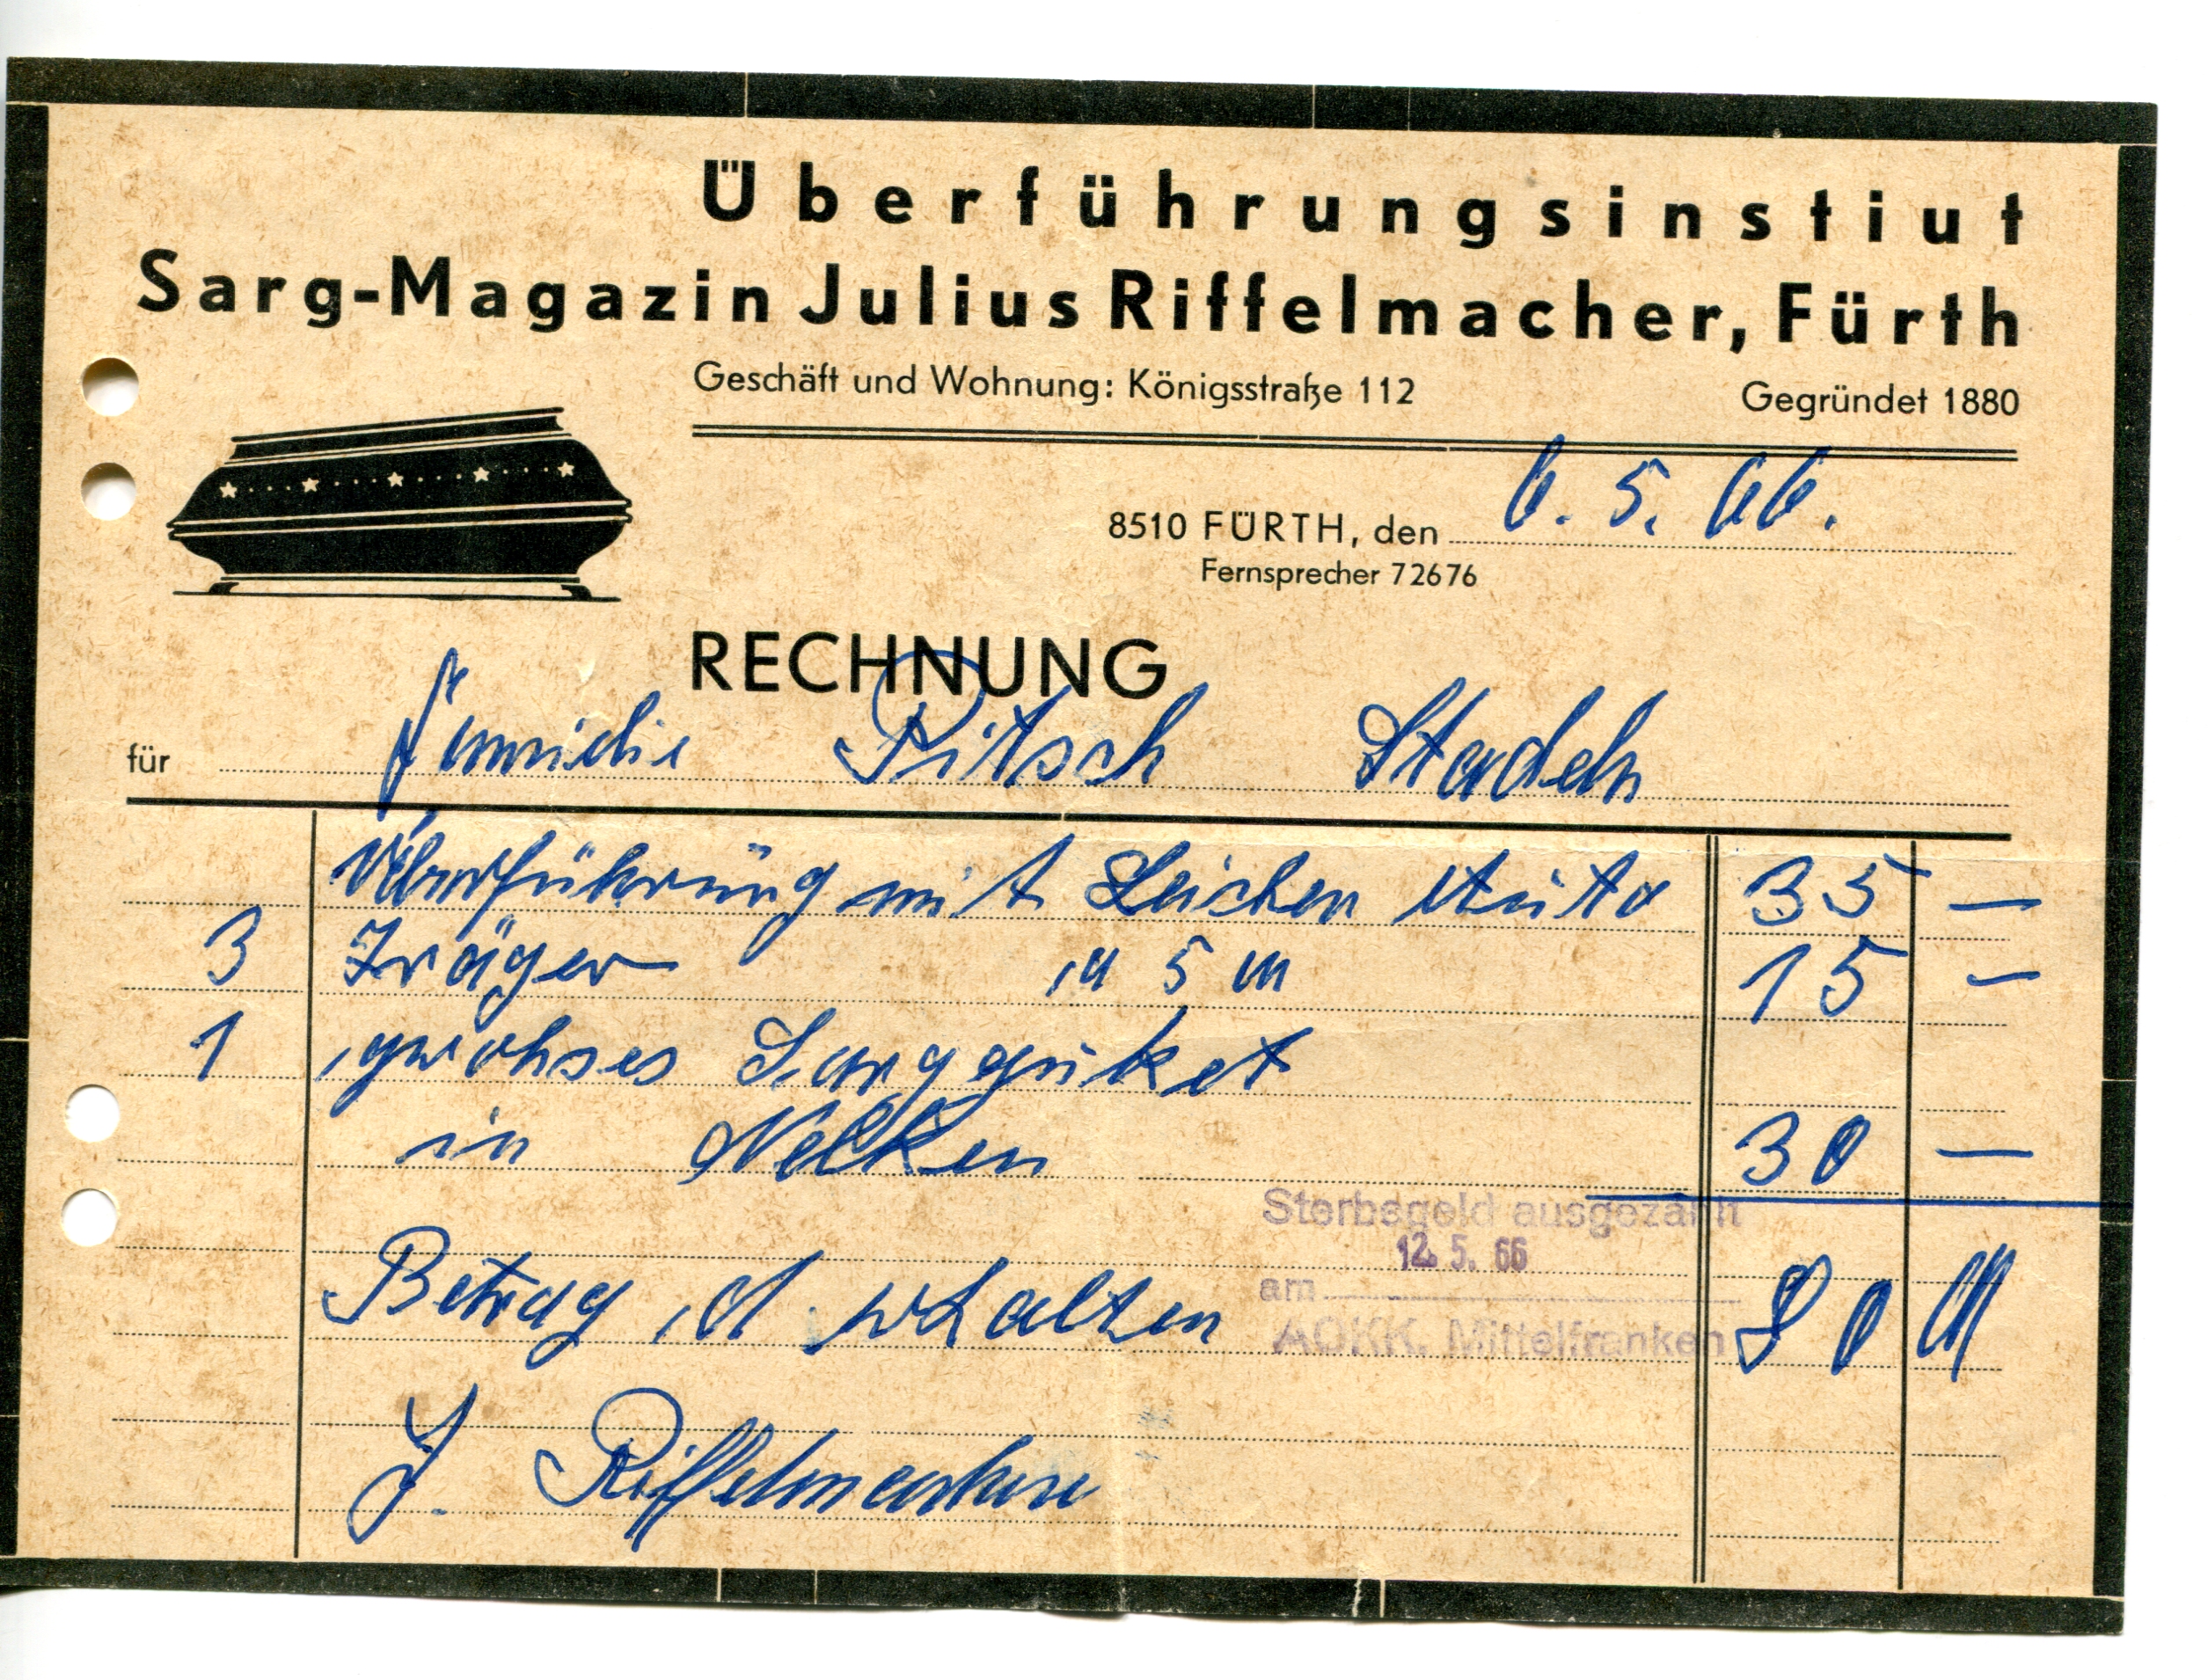 Überführungsinstiut
Sarg-Magazin Julius Riffelmacher, Fürth
Geschäft und Wohnung: Königsstraße 112 Gegründet 1880
8510 FÜRTH, den 6. 5. 66.
Fernsprecher 72676
RECHNUNG
für Familie Pitsch Stadeln
Überführung mit Leichen Auto 35 —
3 Träger a 5 M 15 —
1 grohses Sargbuket
in Nelken 30 —
Sterbegeld ausgezahlt
am 12. 5. 66
AOKK. Mittelfranken
Betrag erhalten 80 M
J. Riffelmacher